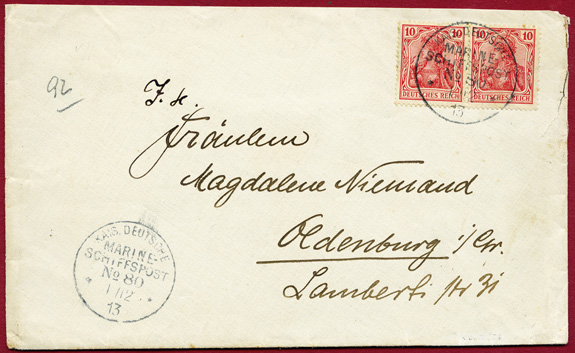 10 10 10 10
DEUTSCHES REICH DEUTSCHES REICH
KAIS. DEUTSCHE
MARINE-
SCHIFFSPOST
No 80
13
92
Fräulein
Magdalene Niemand
Oldenburg i/Gr.
Lamberti str 31
KAIS. DEUTSCHE
MARINE-
SCHIFFSPOST
No 80
* 1/12 *
13